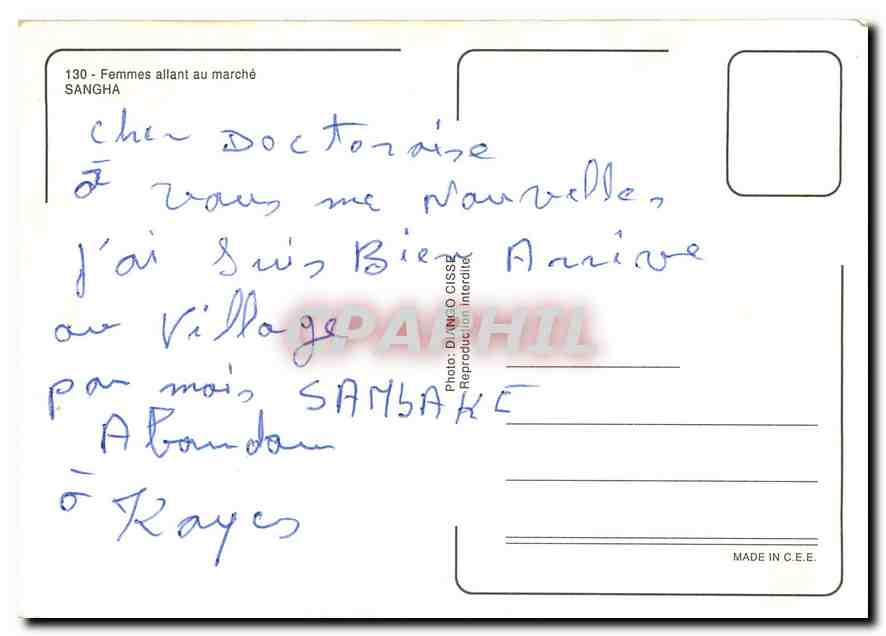 130 - Femmes allant au marché
SANGHA
Cher Doctoraise
à vous me Nouvelle,
J'ai Suis Bien Arrive
au Village
par mois SAMBAKE
Abandou
à Kayes
CPAPHIL
Photo: DIANGO CISSE
Reproduction interdite
MADE IN C.E.E.